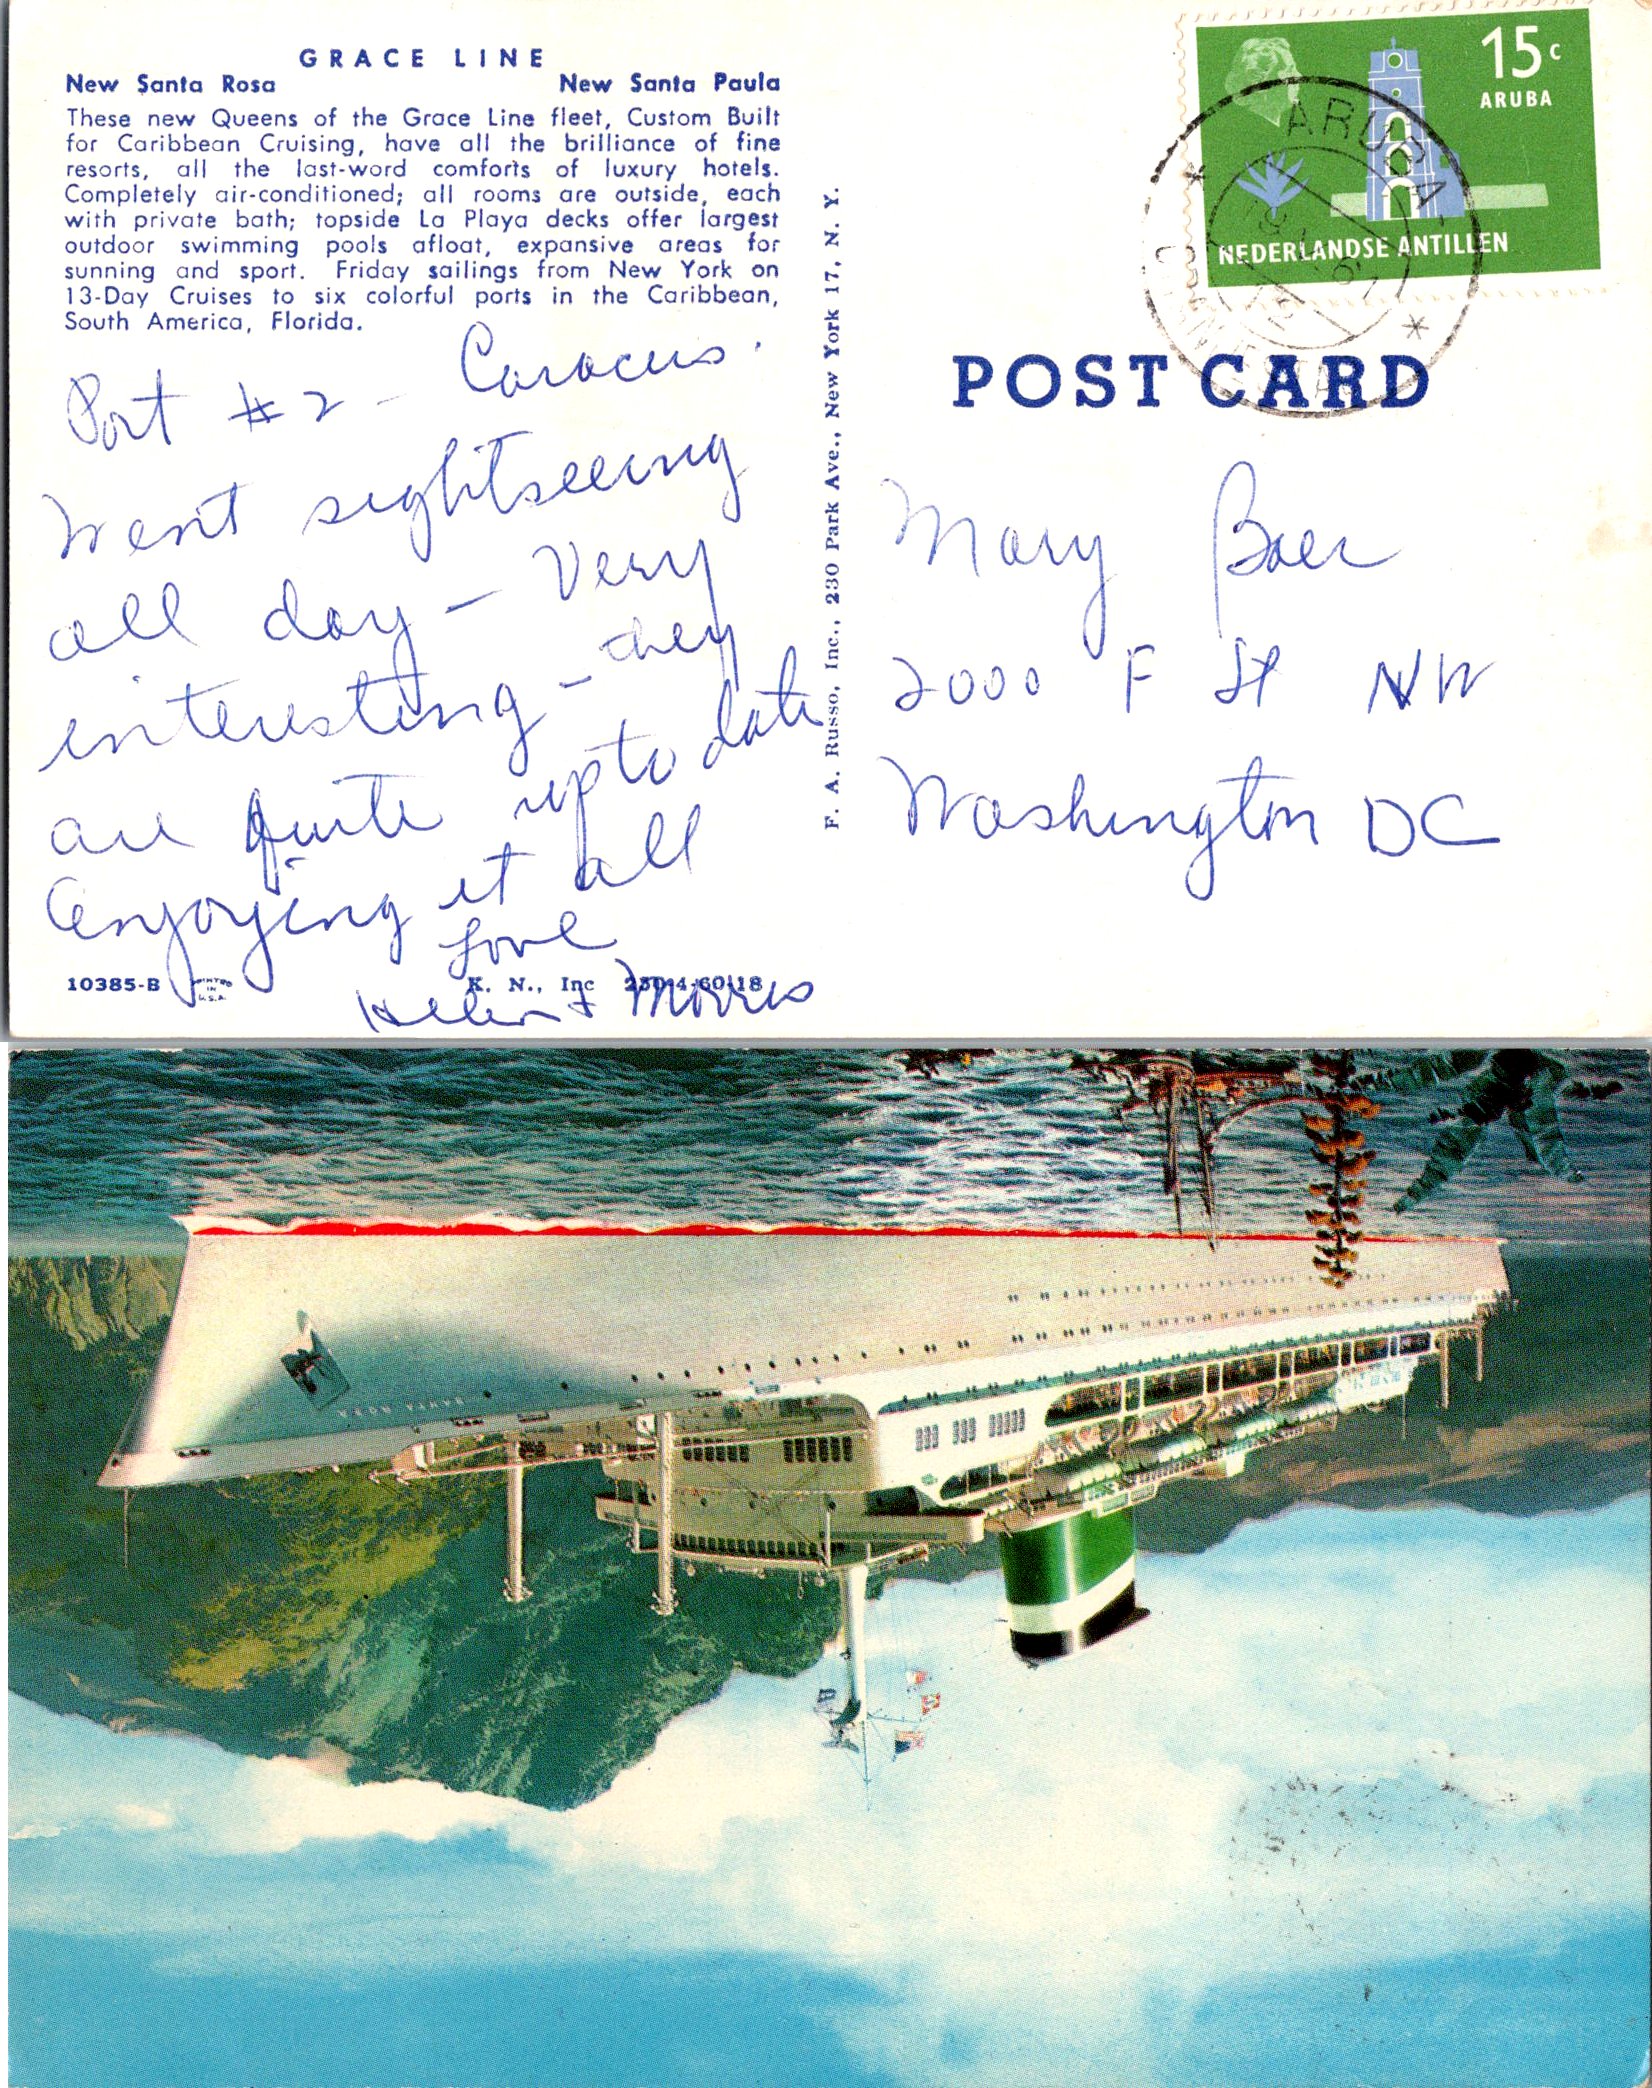 GRACE LINE
New Santa Rosa New Santa Paula
These new Queens of the Grace Line fleet, Custom Built
for Caribbean Cruising, have all the brilliance of fine
resorts, all the last-word comforts of luxury hotels.
Completely air-conditioned; all rooms are outside, each
with private bath; topside La Playa decks offer largest
outdoor swimming pools afloat, expansive areas for
sunning and sport. Friday sailings from New York on
13-Day Cruises to six colorful ports in the Caribbean,
South America, Florida.
Port #2 - Caracus.
Went sightseeing
all day - Very
interesting - they
are quite up to date
Enjoying it all
Love
Helen & Morris
10385-B
PRINTED
IN
U.S.A.
K. N., Inc 230-4-60-18
F. A. Russo, Inc., 230 Park Ave., New York 17, N. Y.
15c
ARUBA
NEDERLANDSE ANTILLEN
ARUBA
POST CARD
Mary Baer
2000 F St NW
Washington DC
SANTA ROSA